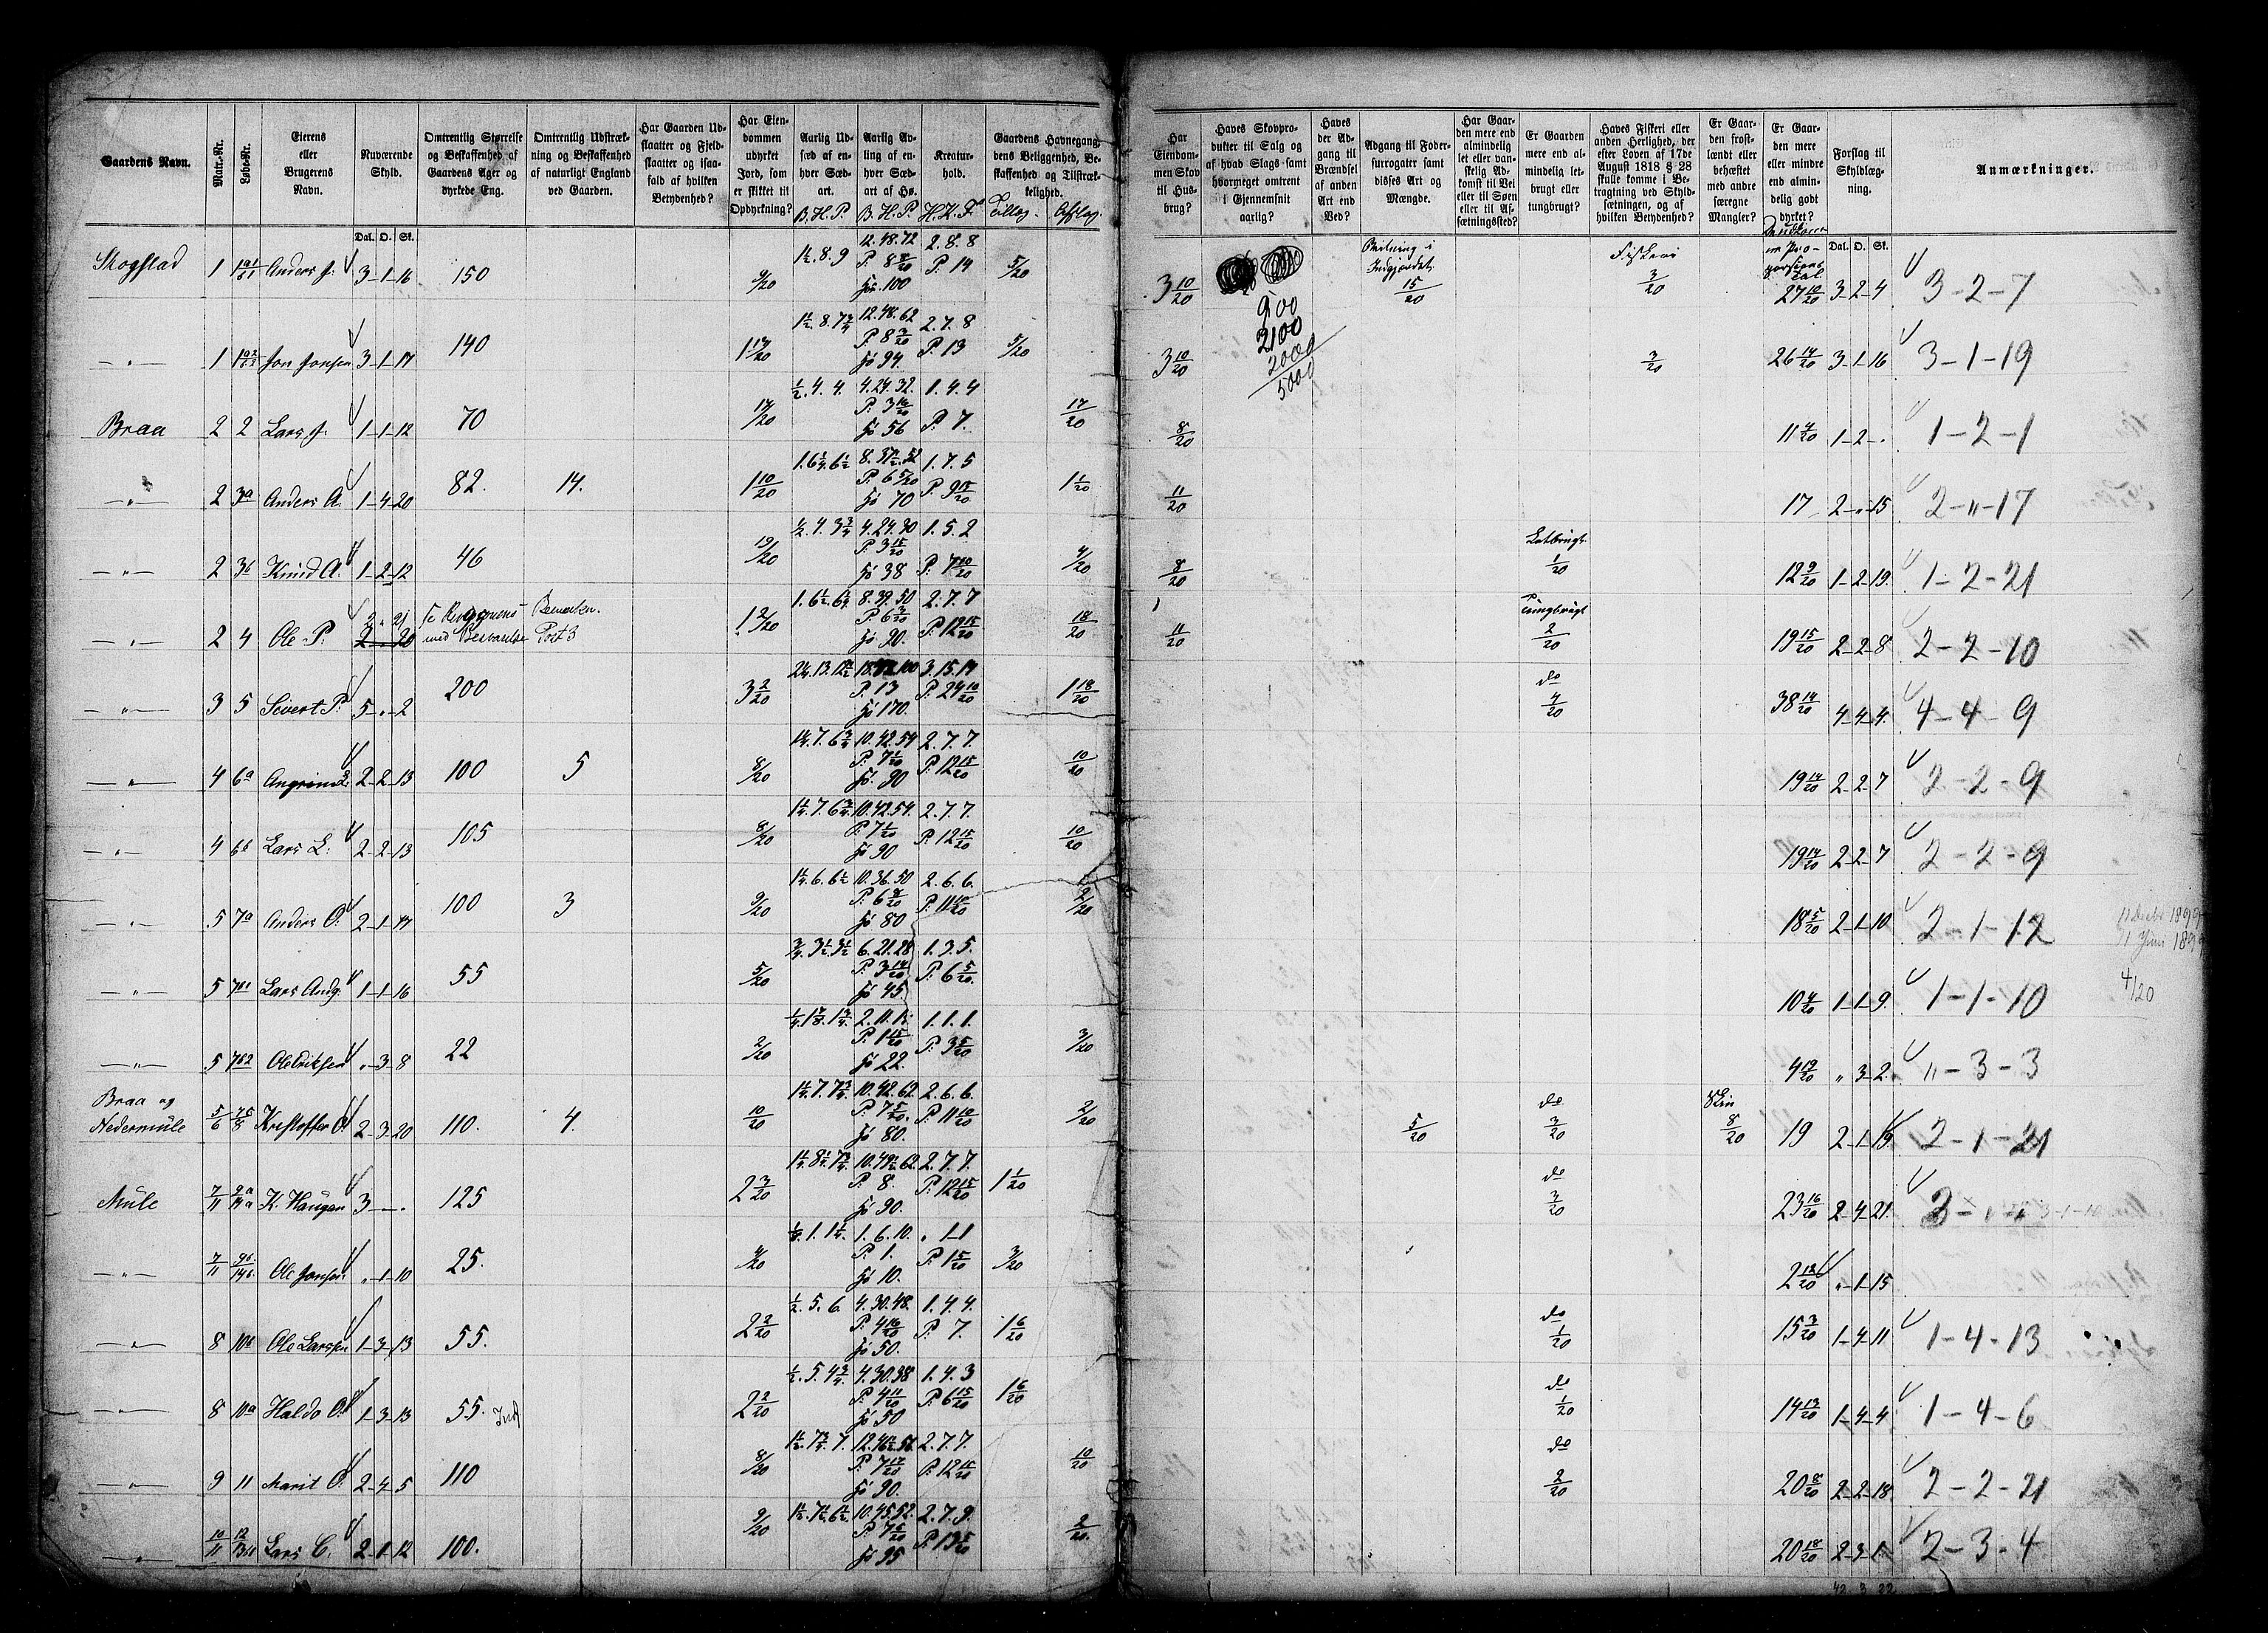 Gaardens Navn.
Matr.-Nr.
Løbe-Nr.
Eierens eller Brugerens Navn.
Nuværende Skyld.
Omtrentlig Størrelse og Beskaffenhed af Gaardens Ager og dyrkede Eng.
Omtrentlig Udstrækning og Beskaffenhed af naturligt England ved Gaarden.
Har Gaarden Udslaatter og Fjeldslaatter og isaafald af hvilken Betydenhed?
Har Eiendommen udyrket Jord, som er skikket til Opdyrkning?
Aarlig Udsæd af enhver Sædart. B. H. P.
Aarlig Avling af enhver Sædart af Hø. B. H. P.
Kreaturhold. H. K. F.
Gaardens Havnegang, dens Beliggenhed, Beskaffenhed og Tilstrækkelighed. Tillæg. Afslag.
Har Eiendommen Skov til Husbrug?
Haves Skovprodukter til Salg og af hvad Slags samt hvormeget omtrent i Gjennemsnit aarlig?
Haves der Adgang til Brændsel af anden Art end Ved?
Adgang til Fodersurrogater samt disses Art og Mængde.
Har Gaarden mere end almindelig let eller vanskelig Adkomst til Vei eller til Søen eller til Afsætningssted?
Er Gaarden mere end almindelig letbrugt eller tungbrugt?
Haves Fiskeri eller anden Herlighed, der efter Loven af 17de August 1818 § 28 skulle komme i Betragtning ved Skyldsætningen, og af hvilken Betydenhed?
Er Gaarden frostlændt eller behæftet med andre særegne Mangler?
Er Gaarden mere eller mindre end almindelig godt dyrket?
Forslag til Skyldlægning.
Anmærkninger.
Dal. O. Sk.
Dal. O. Sk.
Skogstad 1 Anders J. 3-1-16 150 9/20 1½.8.9 12.48.72 P. 8 8/20 Hø. 100 2.8.8 P. 14 5/20 3 10/20 900 Beitning i Indgjærdet. 15/20 Fiskeri 3/20 27 10/20 3-2-4 3-2-7
-"- 1 Jon Jonsen 3-1-17 140 1 17/20 1½.8.7¾ 12.48.62 P. 8 3/20 Hø 94. 2.7.8 P. 13 5/20 3 10/20 2100 2000 5000 3/20 26 14/20 3-1-16 3-1-19
Braa 2 2 Lars J. 1-1-12 70 17/20 ½.4.4. 4.24.32. P. 3 16/20 Hø 56 1.4.4 P. 7. 17/20 8/20 11 4/20 1-2-. 1-2-1
-"- 2 3a Anders A. 1-4-20 82. 14. 1 10/20 P. 6 5/20 Hø 70 1.7.5 P. 9 15/20 1 1/20 11/20 17 2-"-15 2-"-17
-"- 2 3b Knud A. 1-2-12 46 19/20 ½.4.3¾ 4.24.30 P. 3 15/20 Hø 38 1.5.2 P. 7 10/20 4/20 8/20 Letbrugt 1/20 12 9/20 1-2-19. 1-2-21
-"- 2 4 Ole P. 2-"-20 med Post 3 1 2/20 8.39.50 P. 6 3/20 Hø 90. 2.7.7 P. 12 15/20 18/20 11/20 Tungbrugt 2/20 19 15/20 2-2-8 2-2-10
-"- 3 5 Sivert P. 5-"-2 200 3 2/20 P. 13 Hø 170. 3.15.14 P. 24 10/20 1 18/20 do 4/20 38 14/20 4-4-4. 4-4-9
-"- 4 6a Angrim L. 2-2-13 100 5 8/20 1¼.7.6¾ 10.42.54 P. 7 1/20 Hø. 90 2.7.7. P. 12 15/20 10/20 19 14/20 2-2-7 2-2-9
-"- 4 6b Lars L. 2-2-13 105 8/20 1¼.7.6¾ 10.42.54. P. 7 1/20 Hø 90 2.7.7. P. 12 15/20 10/20 19 14/20 2-2-7 2-2-9
-"- 5 7a Anders O. 2-1-17 100 3 9/20 1¼.6.6½ 10.36.50 Hø 80 2.6.6. P. 11 10/20 2/20 18 5/20 2-1-10 2-1-12
-"- 5 Lars Andr. 1-1-16 55 5/20 ¾.3½.3½ 6.21.28 P. 3 14/20 Hø 45 1.3.5. P. 6 5/20. 10 4/20 1-1-9. 1-1-10 4/20
-"- 5 7b2 Ole Eriksen "-3-8 22 2/20 P. 1 15/20 Hø 22. 1.1.1. P. 3 5/20 3/20 "3-2. "-3-3
Braa og Nedermule 5/6 Kristoffer O. 2-3-20 110. 4. 10/20 1¼.7.7¾ 10.42.62 P. 7 5/20. Hø 80. 2.6.6. P. 11 10/20 2/20 5/20 do 3/20 8/20 19 2-1-19. 2-1-21
Mule 7/11 K. Haugan 3-"-. 125 2 3/20 P. 8. Hø 90. 2.7.7. P. 12 15/20 1 1/20 do 3/20 23 16/20 2-4-21. 3-1-10
-"- 7/11 9b/14b Ole Jonsen "-1-10 25. 4/20 1.6.10. P. 1. Hø 10. "1-1 P. 1 5/20 3/20 2 12/20 "-1-15
-"- 8 10b Ole Larssen 1-3-13 55. 2 2/20 ½.5.6. 4.30.48. P. 4 16/20 Hø 50. 1.4.4. P. 7. 1 6/20 do 1/20 15 3/20 1-4-11 1-4-13
-"- 8 10a Haldo O. 1-3-13 55. 2 2/20 ½.5.4¾ 4.30.38 P. 4 11/20 Hø 50 1.4.3 P. 6 15/20 1 6/20 do 1/20 14 13/20 1-4-4. 1-4-6
-"- 9 11 Marit O. 2-4-5 110 8/20 P. 7 17/20 Hø 90. 2.7.7. P. 12 15/20 10/20 do 2/20 20 8/20 2-2-18. 2-2-21
-"- 10/11 Lars C. 2-1-12 100. 9/20 10.45.52. Hø 95 2.7.9. P. 13 5/20 2/20. 20 18/20 2-3-1 2-3-4
42. 3 22